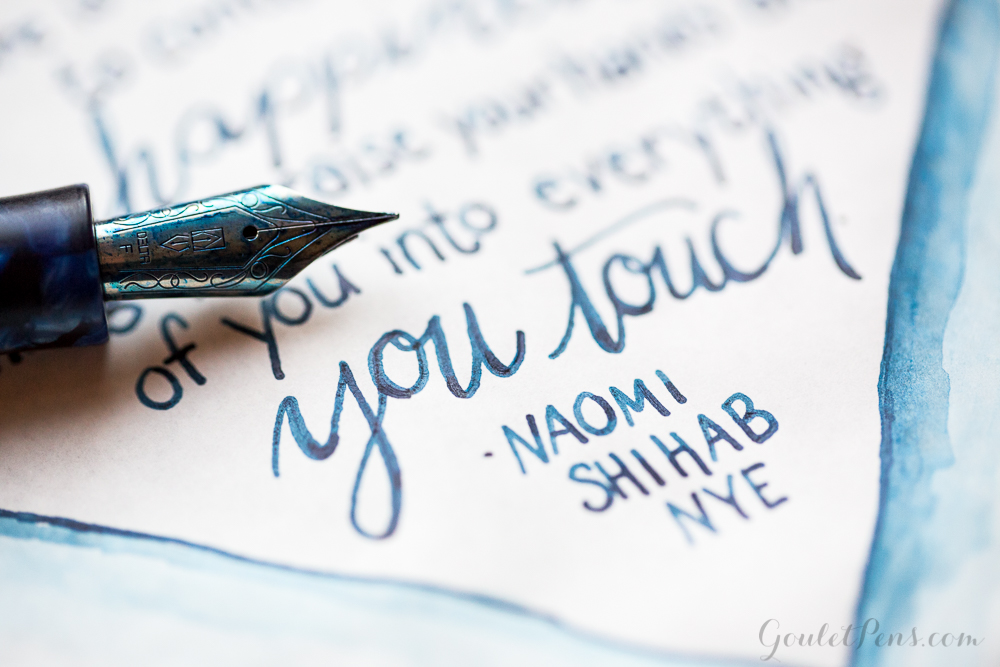 to come
happen
raise your hands
of you into everything
you touch
-NAOMI
SHIHAB
NYE
DELTA
F
GouletPens.com